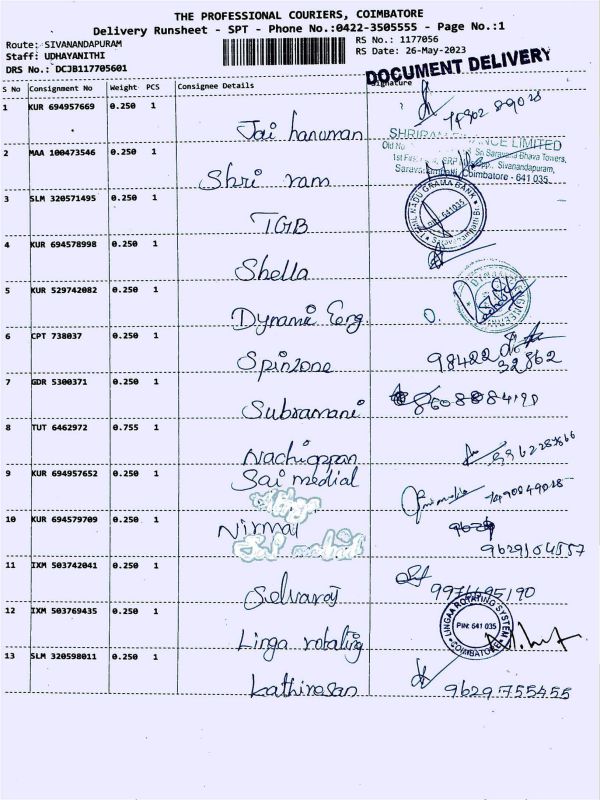 THE PROFESSIONAL COURIERS, COIMBATORE
Delivery Runsheet - SPT - Phone No.:0422-3505555 - Page No.:1
Route: SIVANANDAPURAM
RS No.: 1177056
Staff: UDHAYANITHI
RS Date: 26-May-2023
DRS No.: DCJB117705601
DOCUMENT DELIVERY
S No Consignment No Weight PCS Consignee Details Signature
1 KUR 694957669 0.250 1
Jai hanuman
SHRIRAM FINANCE LIMITED
2 MAA 100473546 0.250 1
Saravana Bhava Towers,
1st Sivanandapuram,
Coimbatore - 641 035
Shri ram
3 SLM 320571495 0.250 1
TAMIL NADU GRAMA BANK
641035
TGB
4 KUR 694578998 0.250 1
Shella
5 KUR 529742082 0.250 1
Dynamic Eng.
6 CPT 738037 0.250 1
Spinzone
98422
32862
7 GDR 5300371 0.250 1
Subramani
8 TUT 6462972 0.755 1
Nachiappan
9 KUR 694957652 0.250 1
Sai medial
10 KUR 694579709 0.250 1
Nirmal
9629104557
11 IXM 503742041 0.250 1
Selvaraj
9976695190
12 IXM 503769435 0.250 1
LINGAA ROTATING SYSTEM
PIN: 641 035
COIMBATORE
Linga rotating
13 SLM 320598011 0.250 1
Kathiresan
9629755455